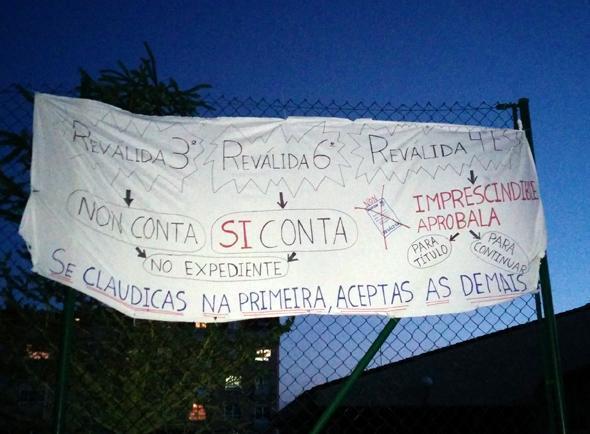 REVÁLIDA 3º
REVÁLIDA 6º
REVÁLIDA 4º ESO
NON CONTA
SI CONTA
IMPRESCINDIBLE
APROBALA
NO EXPEDIENTE
PARA
TÍTULO
PARA
CONTINUAR
SE CLAUDICAS NA PRIMEIRA, ACEPTAS AS DEMAIS